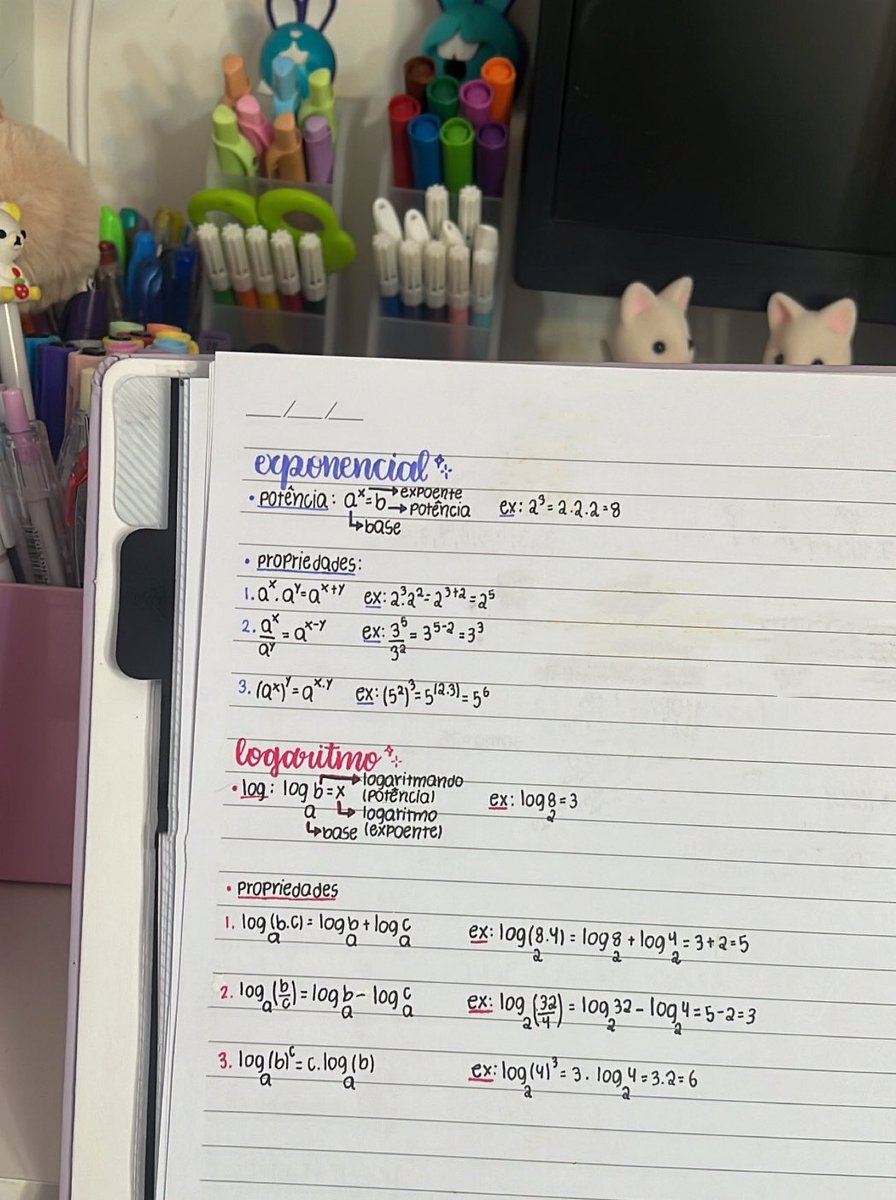 __/__/__
exponencial
• potência: aˣ = b → expoente → potência ↳ base ex: 2³ = 2.2.2 = 8
• propriedades:
1. aˣ.aʸ = aˣ⁺ʸ ex: 2³.2² = 2³⁺² = 2⁵
2. aˣ/aʸ = aˣ⁻ʸ ex: 3⁵/3² = 3⁵⁻² = 3³
3. (aˣ)ʸ = aˣ·ʸ ex: (5²)³ = 5⁽²·³⁾ = 5⁶
logaritmo
• log: logₐ b = x → logaritmando (potência) ↳ logaritmo (expoente) ↳ base ex: log₂ 8 = 3
• propriedades
1. logₐ (b.c) = logₐ b + logₐ c ex: log₂ (8.4) = log₂ 8 + log₂ 4 = 3 + 2 = 5
2. logₐ (b/c) = logₐ b - logₐ c ex: log₂ (32/4) = log₂ 32 - log₂ 4 = 5 - 2 = 3
3. logₐ (b)ᶜ = c. logₐ (b) ex: log₂ (4)³ = 3. log₂ 4 = 3.2 = 6